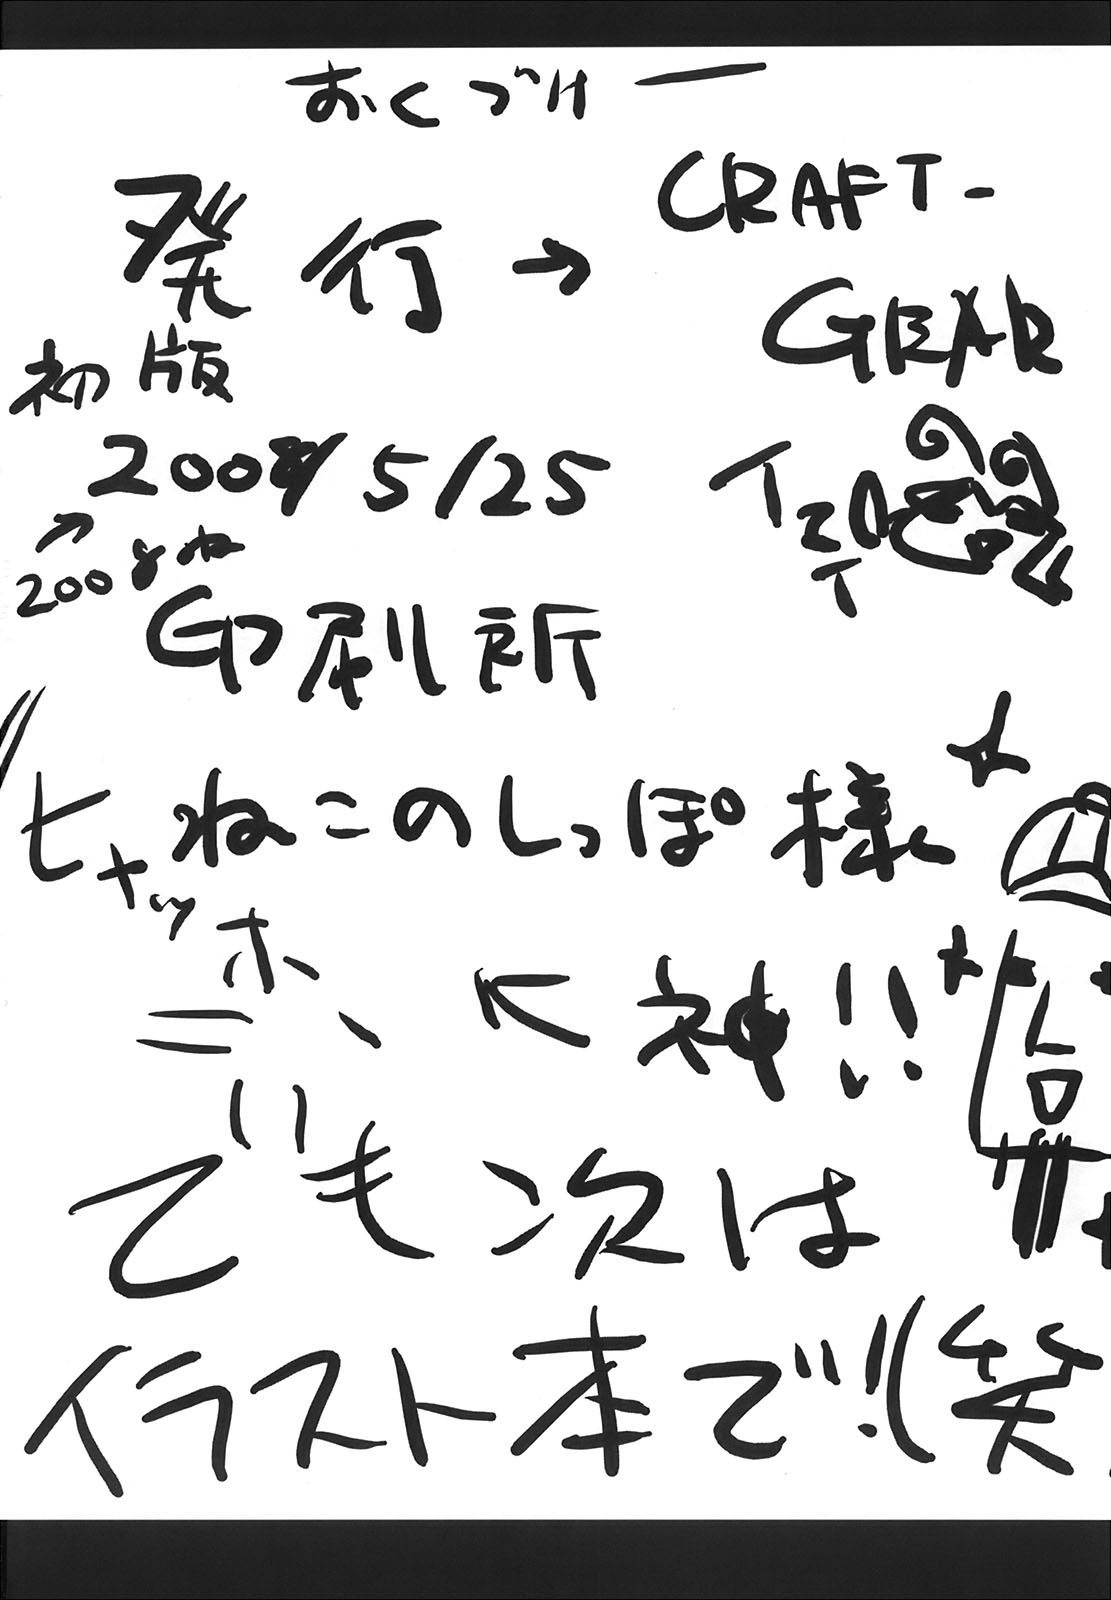 おくづけー
発行→CRAFT-
GEAR
初版
200 5/25
↗
2008ね
印刷所
ねこのしっぽ様
ヒャッホ
←神!!
でも次は
イラスト本で!!(笑